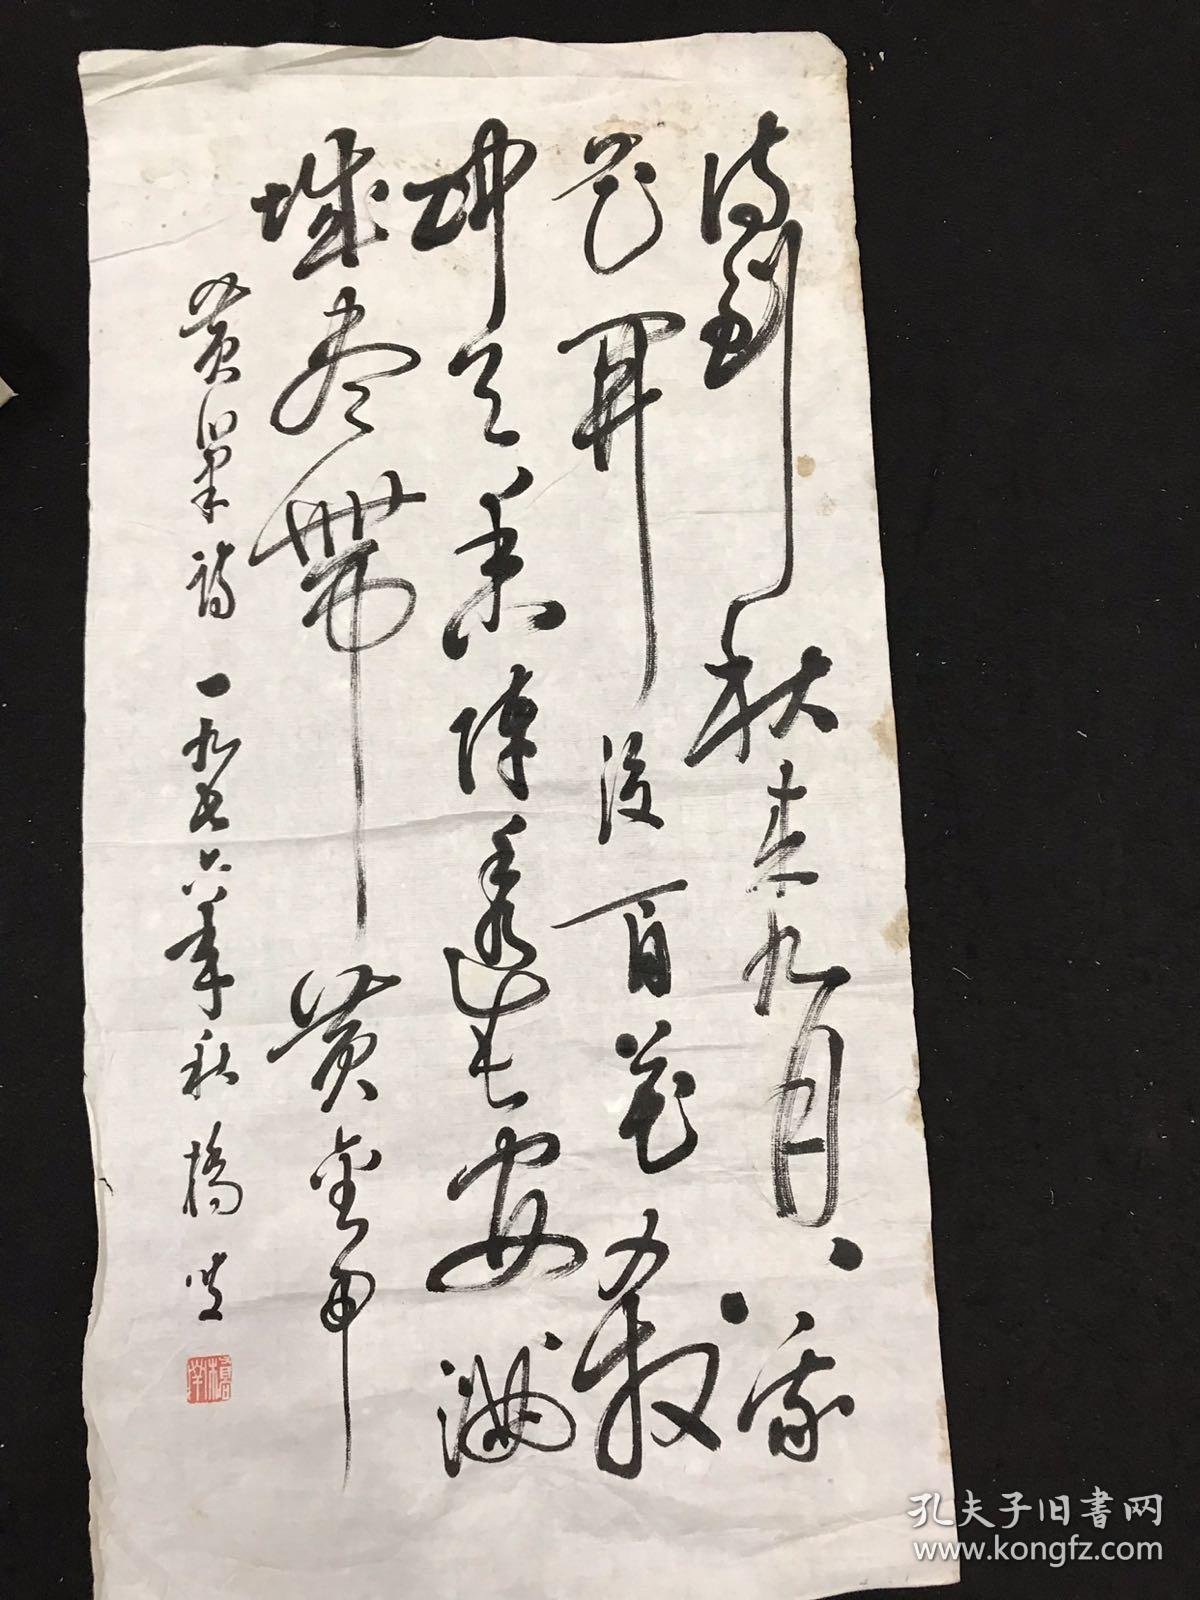 待到秋来九月八我
花開後百花殺
冲天香陣透長安滿
城尽帶黄金甲
黄巢詩 一九七六年秋 橋
孔夫子旧书网
www.kongfz.com